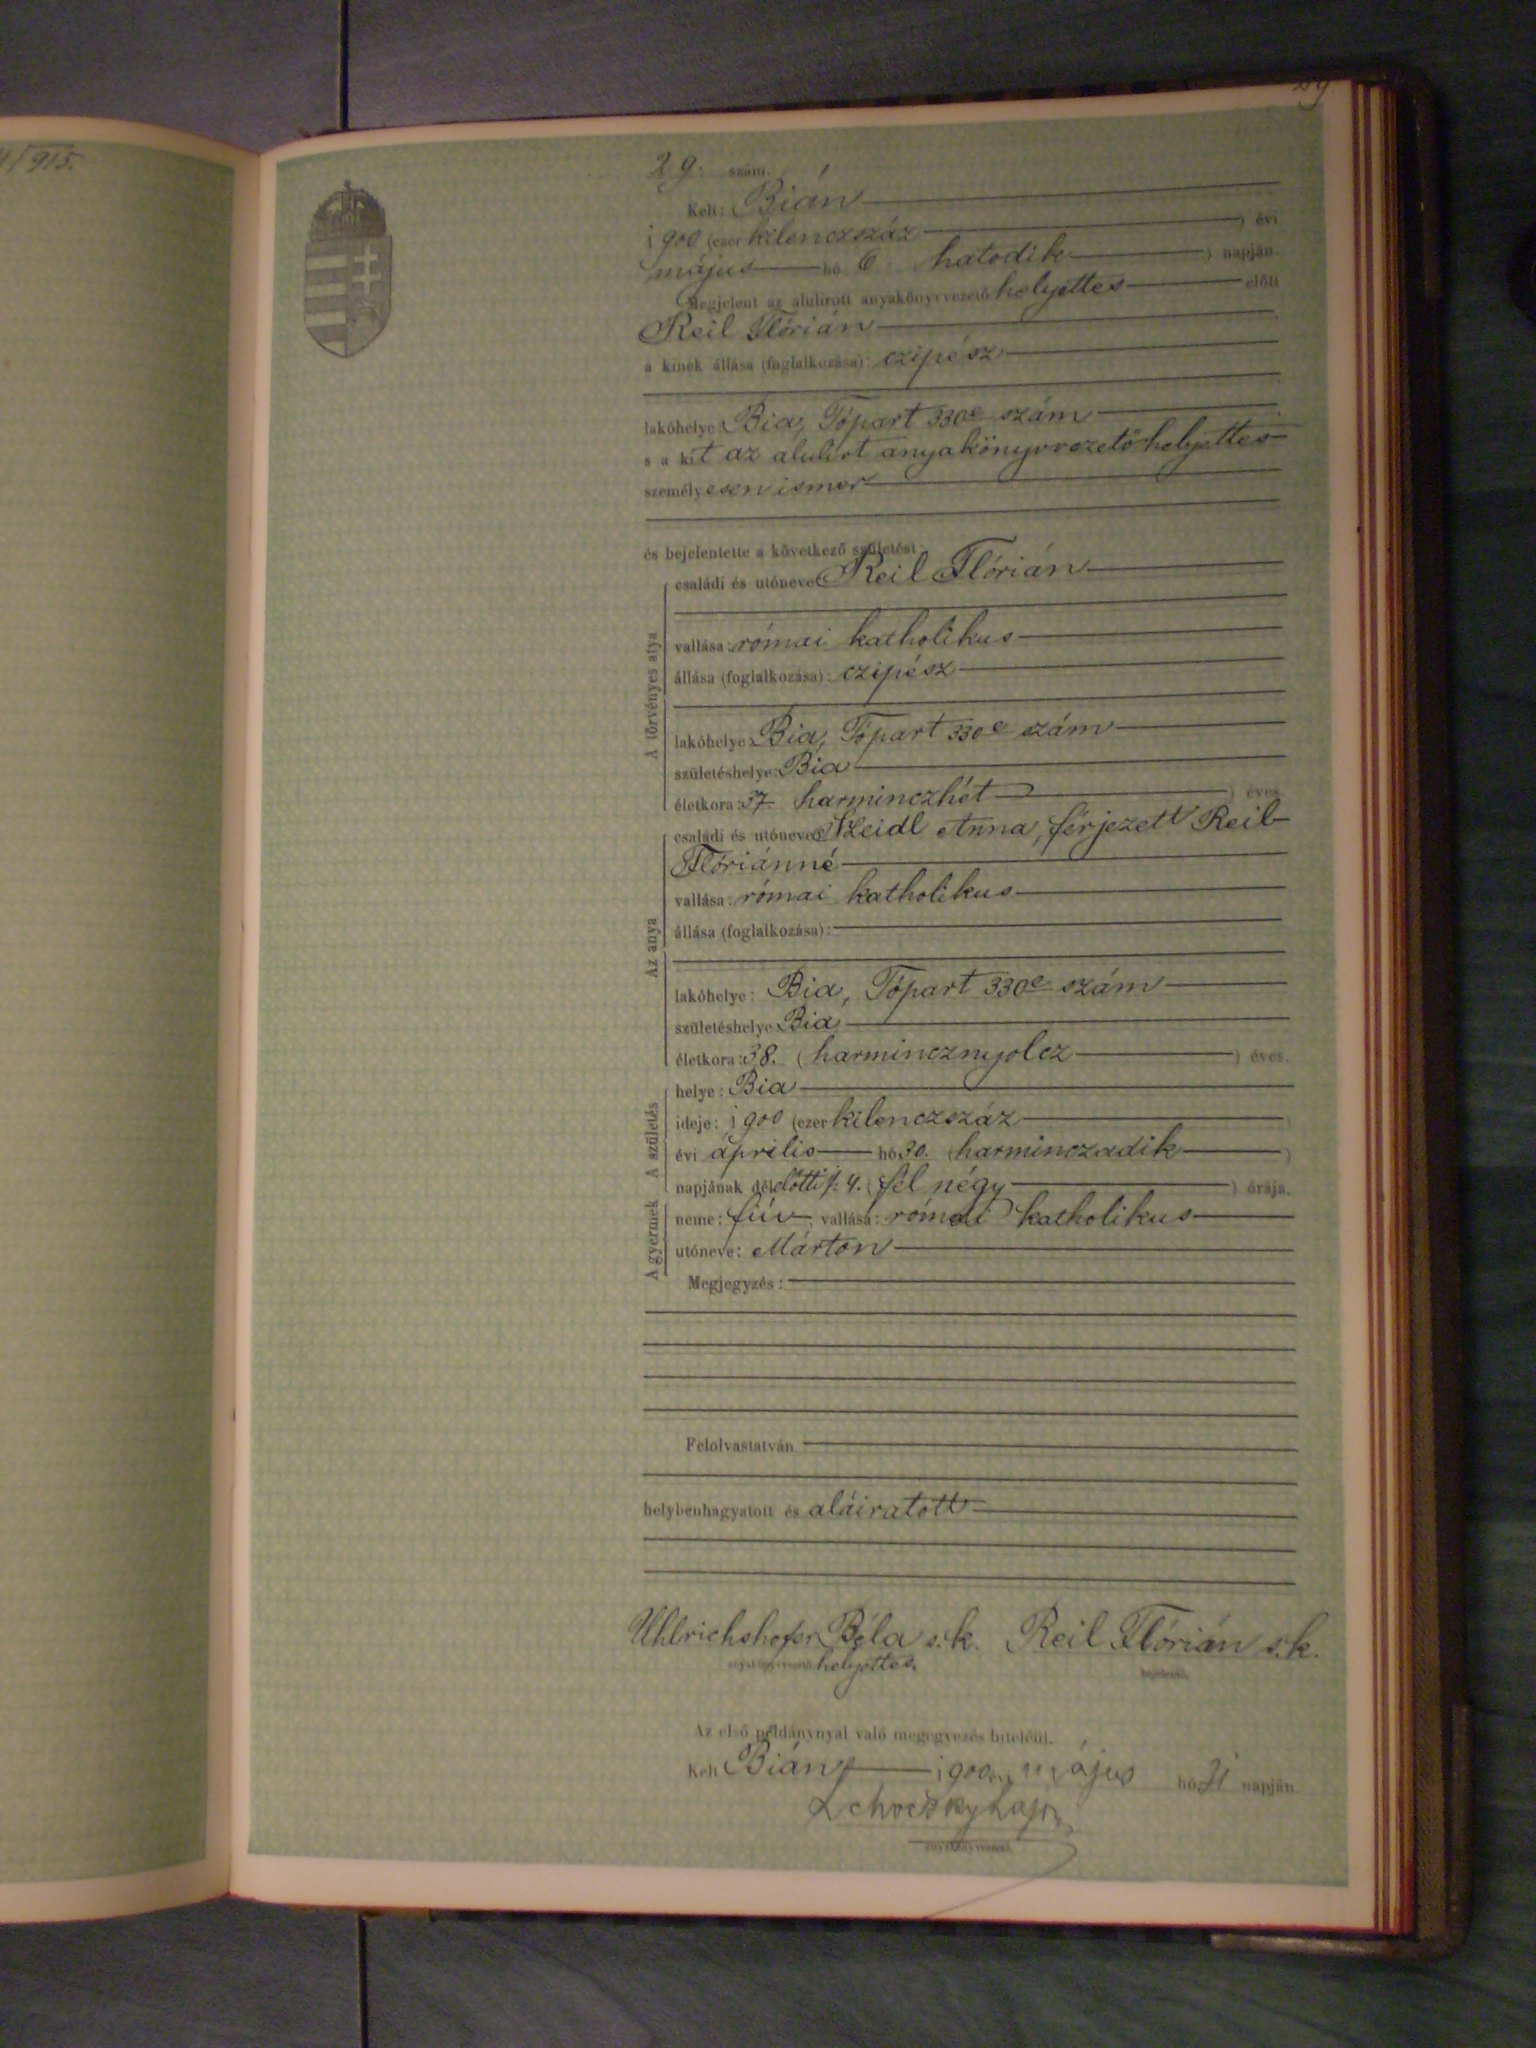 /915.
29
29. szám.
Kelt: Bián
1900 (ezer kilenczszáz) évi
május hó 6. hatodik) napján.
Megjelent az alulirott anyakönyvvezető helyettes előtt
Reil Flórián
a kinek állása (foglalkozása): czipész
lakóhelye: Bia, Tópart 330e szám
s a kit az alulirt anyakönyvvezető helyettes
személyesen ismer
és bejelentette a következő születést:
A törvényes atya
családi és utóneve: Reil Flórián
vallása: római katholikus
állása (foglalkozása): czipész
lakóhelye: Bia, Tópart 330e szám
születéshelye: Bia
életkora: 37. harminczhét) éves.
Az anya
családi és utóneve: Szeidl Anna, férjezett Reil
Flóriánné
vallása: római katholikus
állása (foglalkozása):
lakóhelye: Bia, Tópart 330e szám
születéshelye: Bia
életkora: 38. (harmincznyolcz) éves.
A születés
helye: Bia
ideje: 1900 (ezer kilenczszáz)
évi április hó 30. (harminczadik)
napjának délelőtti f. 4. (fél négy) órája.
A gyermek
neme: fiú; vallása: római katholikus
utóneve: Márton
Megjegyzés:
Felolvastatván
helybenhagyatott és aláiratott
Uhlrichshofer Béla s.k. Reil Flórián s.k.
anyakönyvvezető helyettes. bejelentő.
Az első példánynyal való megegyezés hiteléül.
Kelt Bián, 1900. évi május hó 31 napján.
Lehoczky Lajos
anyakönyvvezető.